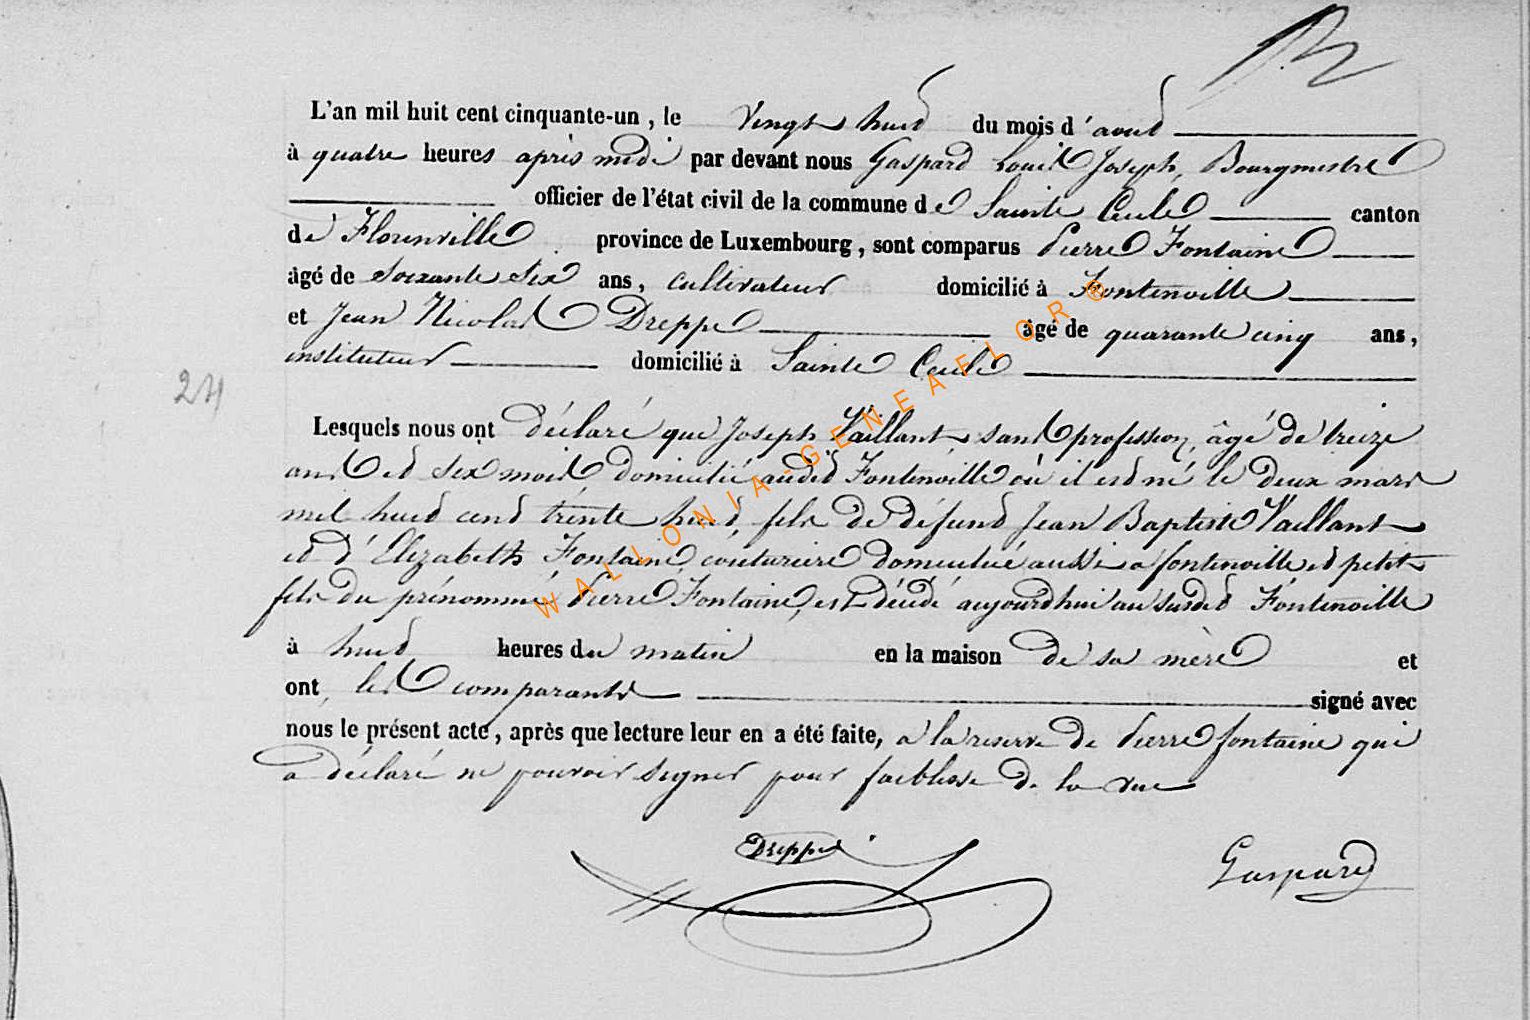 L'an mil huit cent cinquante-un, le vingt huit du mois d'aout
à quatre heures après midi par devant nous Gaspard Louis Joseph, Bourgmestre
officier de l'état civil de la commune de Sainte Cecile canton
de Florenville province de Luxembourg, sont comparus Pierre Fontaine
âgé de soixante six ans, cultivateur domicilié à Fontenoille
et Jean Nicolas Dreppe âgé de quarante cinq ans,
instituteur domicilié à Sainte Cecile
24
Lesquels nous ont déclaré que Joseph Vaillant, sans profession, âgé de treize
ans et six mois domicilié audit Fontenoille où il est né le deux mars
mil huit cent trente huit, fils de défunt Jean Baptiste Vaillant
et d'Elizabeth Fontaine, couturiere domiciliée aussi a fontenoille et petit
fils du prénommé Pierre Fontaine, est décédé aujourdhui au susdit Fontenoille
à huit heures du matin en la maison de sa mère et
ont les comparants signé avec
nous le présent acte, après que lecture leur en a été faite, a la reserve de Pierre fontaine qui
a déclaré ne pouvoir signer pour faiblesse de la vue
Dreppe Gaspard
WALLONIA-GENEAFLOR®